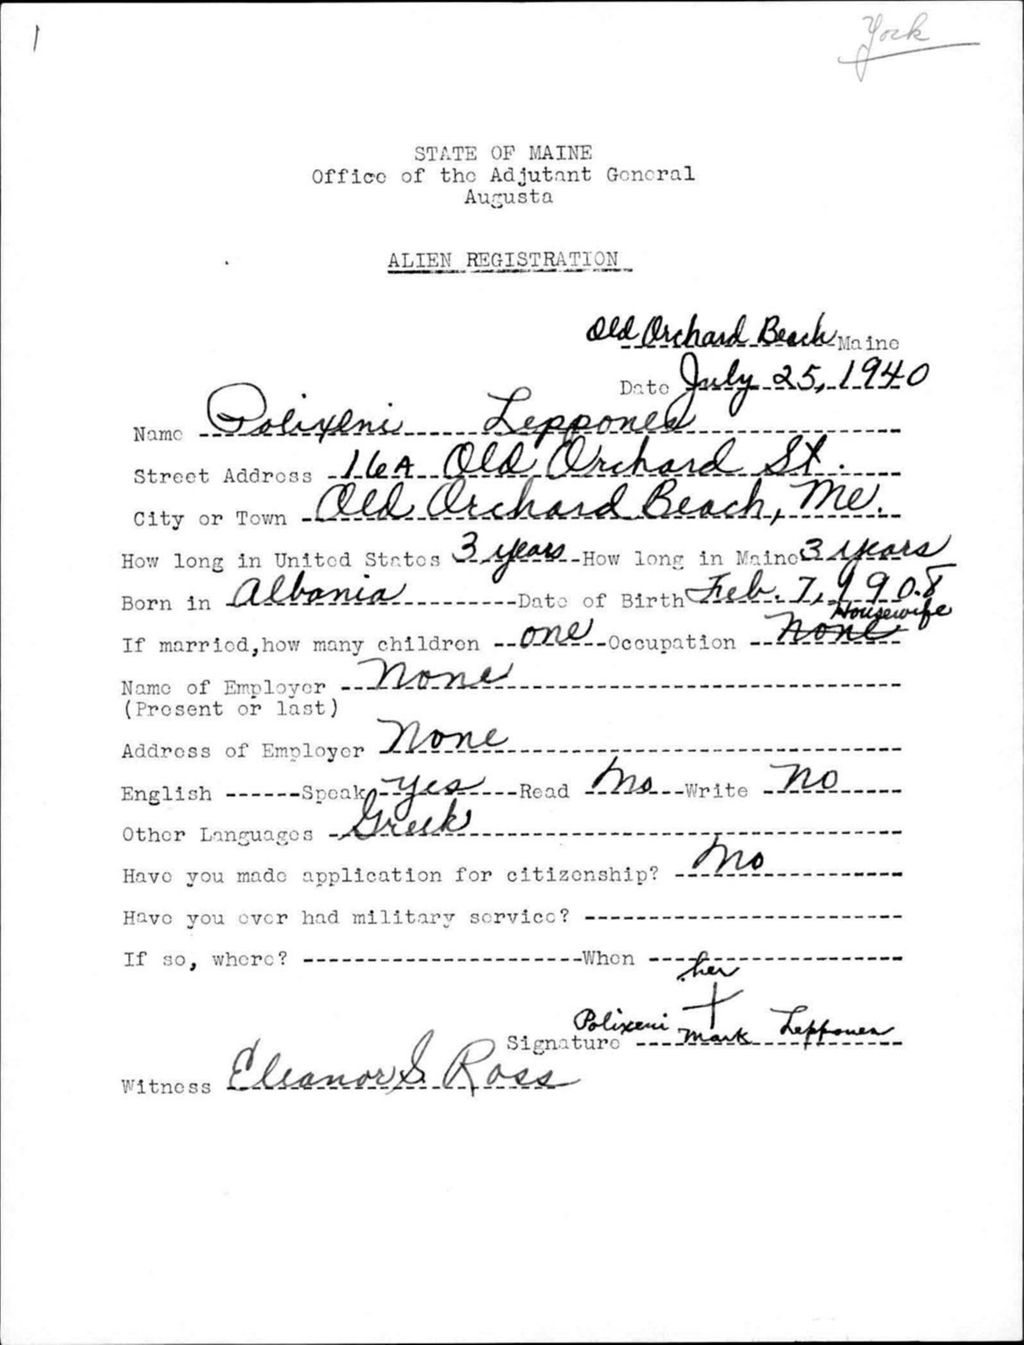 1
York
STATE OF MAINE
Office of the Adjutant General
Augusta
ALIEN REGISTRATION
Old Orchard Beach Maine
Date July 25, 1940
Name Polixeni Lepponen
Street Address 16A Old Orchard St.
City or Town Old Orchard Beach, Me.
How long in United States 3 years How long in Maine 3 years
Born in Albania Date of Birth Feb. 7, 1908
Housewife
If married, how many children one Occupation None
Name of Employer None
(Present or last)
Address of Employer None
English Speak yes Read No Write No
Other Languages Greek
Have you made application for citizenship? No
Have you ever had military service?
If so, where? When
her
Signature Polixeni + mark Lepponen
Witness Eleanor S. Ross